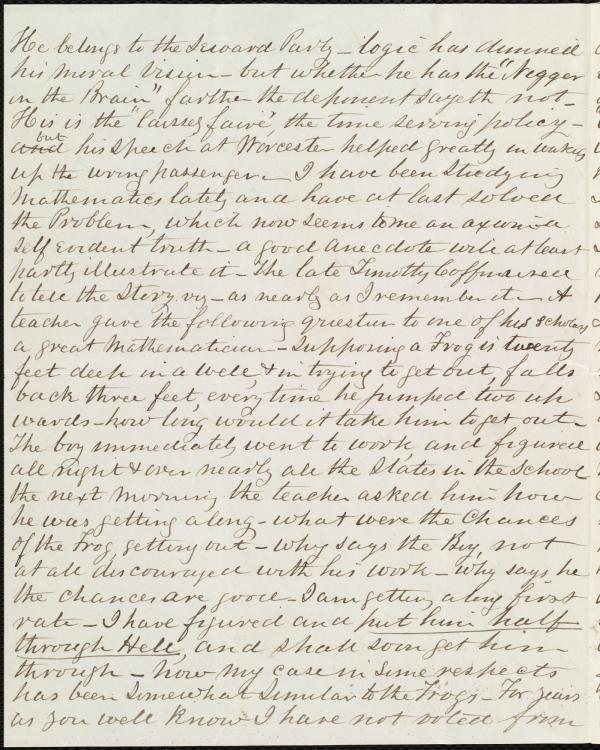 He belongs to the Seward Party - logic has dimmed
his moral vision - but whether he has the "Negger
on the Brain" farther the deponent sayeth not -
His is the "laissez faire", the time serving policy -
and but his speech at Worcester helped greatly in waking
up the wrong passenger - I have been studying
Mathematics lately and have at last solved
the Problem, which now seems to me an axiom - a
self evident truth - a good anecdote will at least
partly illustrate it - The late Timothy Coffin used
to tell the Story. viz - as nearly as I remember it - A
teacher gave the following question to one of his scholars
a great Mathematician - Supposing a Frog is twenty
feet deep in a well, & in trying to get out, falls
back three feet, every time he jumped two up
wards - how long would it take him to get out -
The boy immediately went to work, and figured
all right & over nearly all the slates in the School
the next morning the teacher asked him how
he was getting along - what were the chances
of the Frog, getting out - why says the Boy, not
at all discouraged with his work - why says he
the chances are good - I am getting along first
rate - I have figured and put him half
through Hell, and shall soon get him
through - now my case in some respects
has been somewhat similar to the Frogs - For years
as you well know I have not voted from